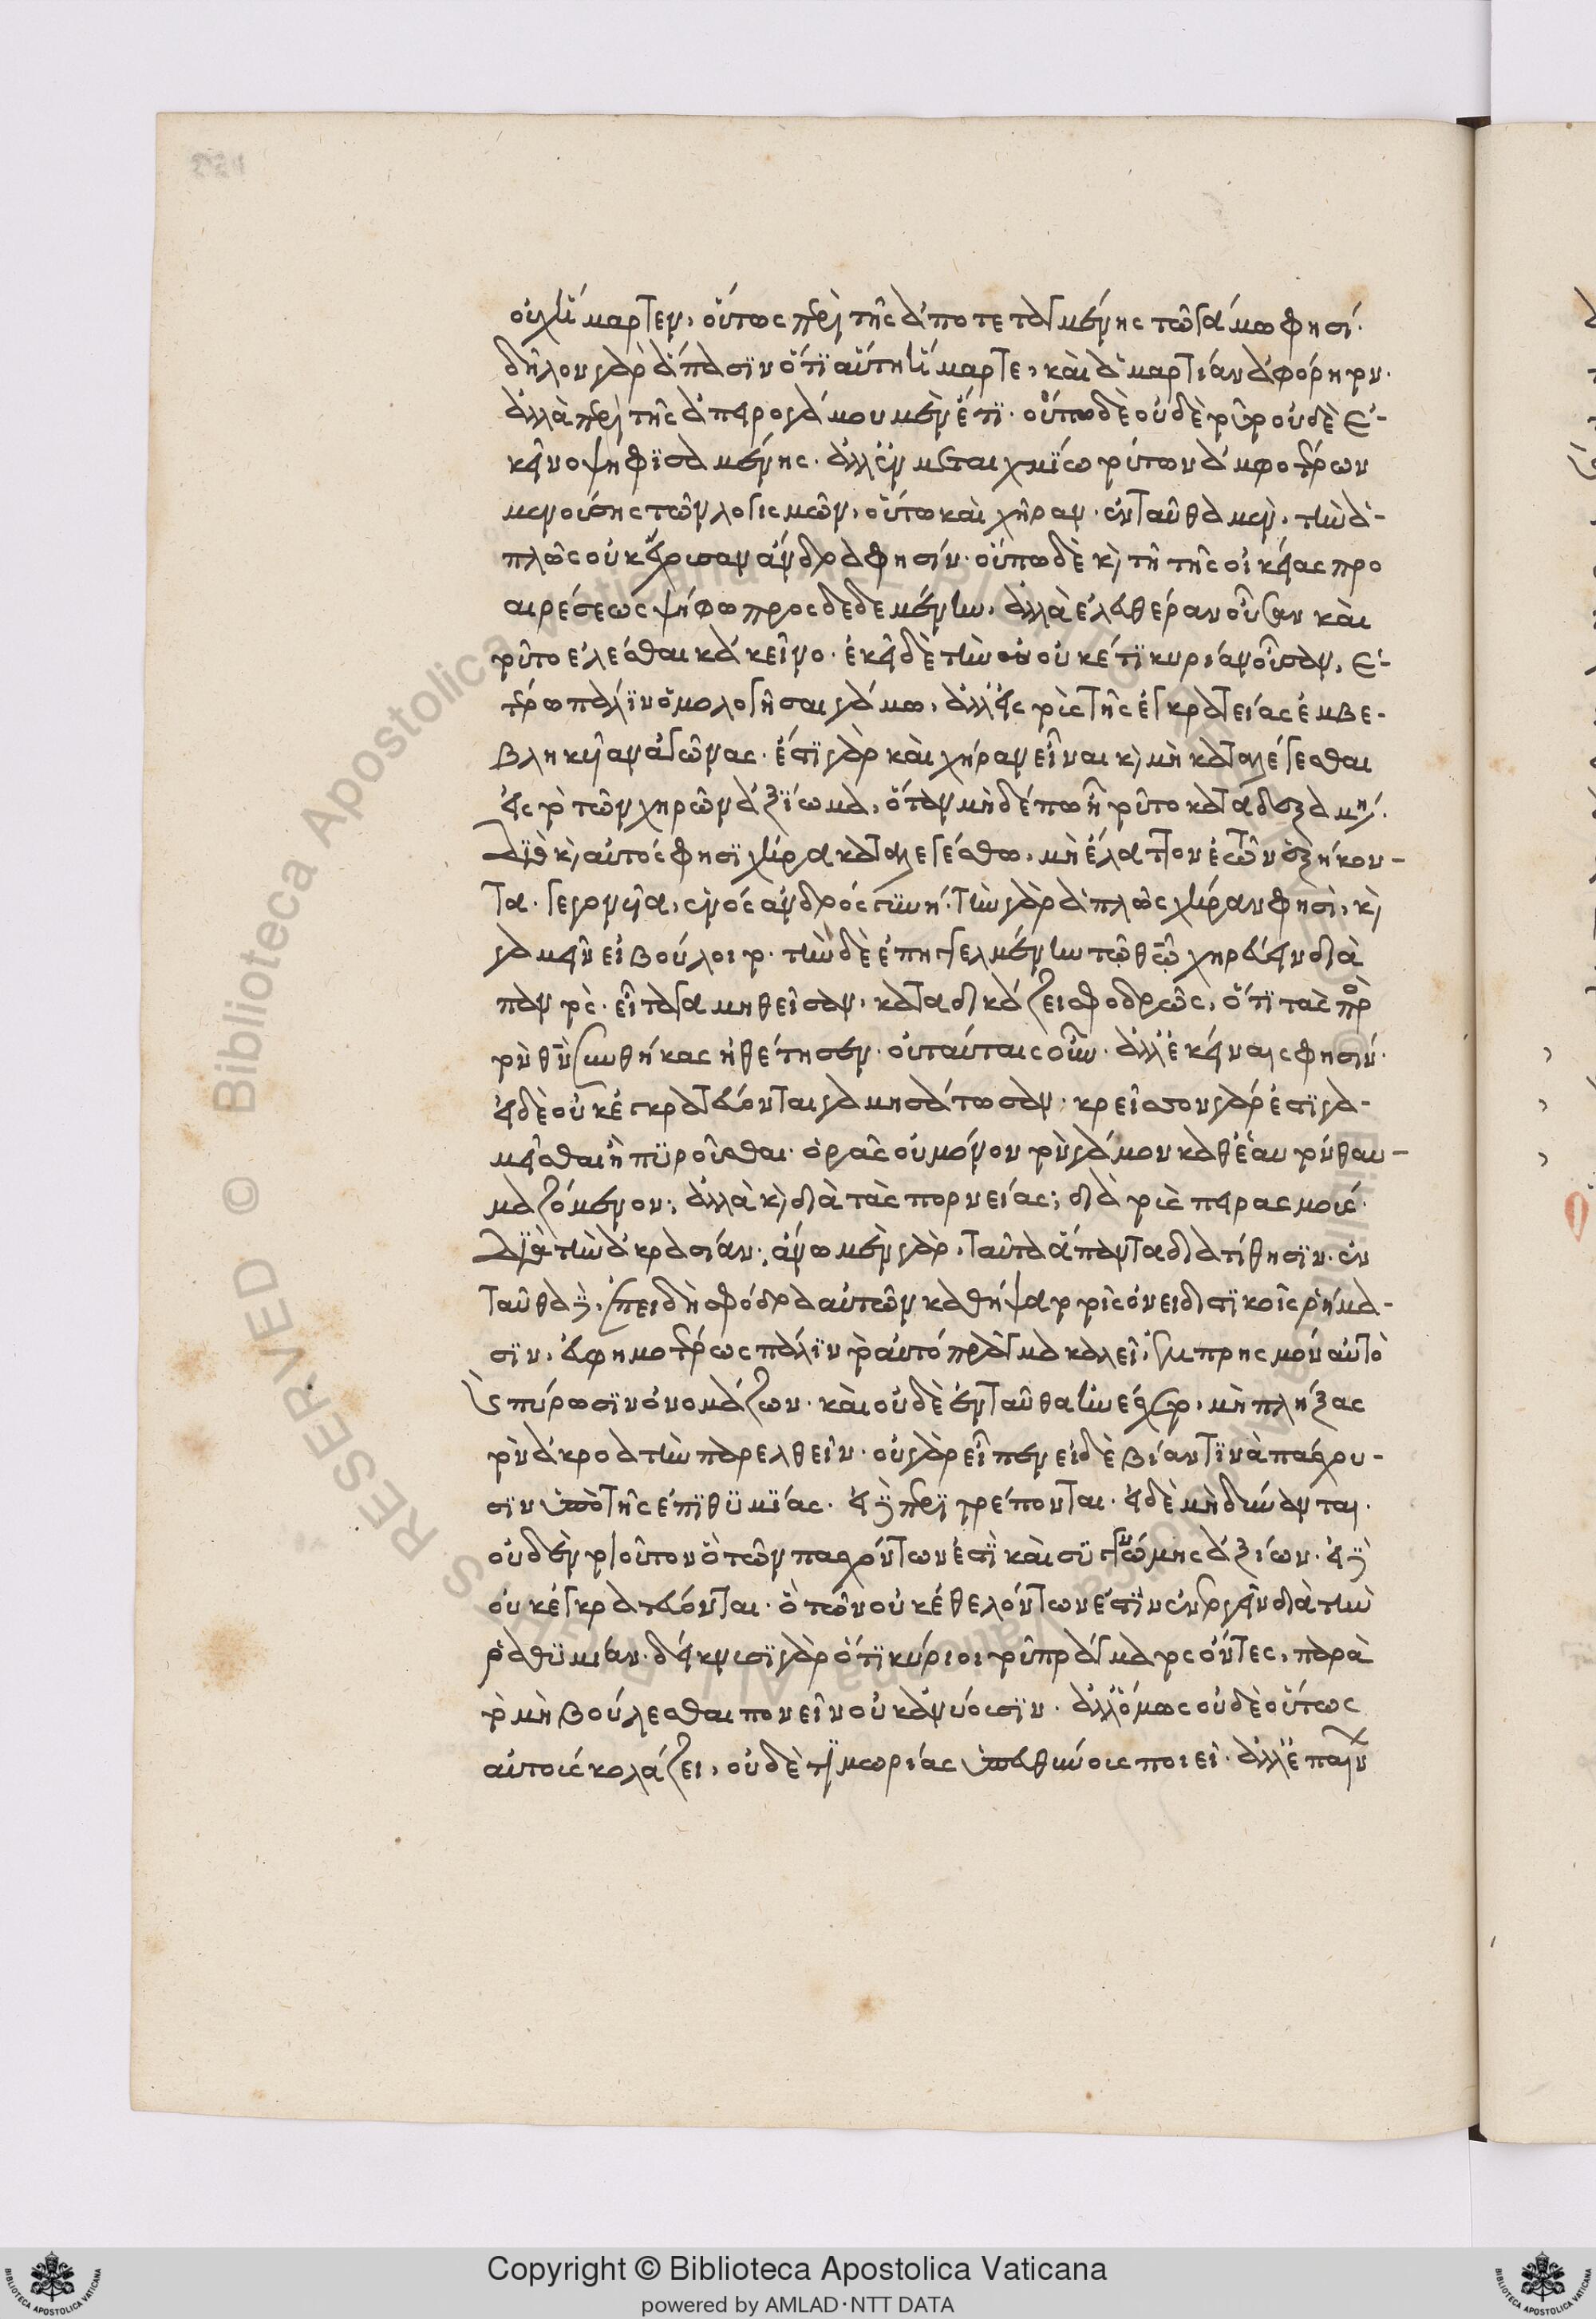 οὐχ ἥμαρτεν, οὕτως περὶ τῆς ἀποτεταγμένης τῶ γάμω φησί·
δῆλον γὰρ ἅπασϊν ὅτϊ αὕτη ἥμαρτε, καὶ ἁμαρτίαν ἀφόρητον·
ἀλλὰ περὶ τῆς ἀπειρογάμου μὲν ἔτϊ· οὔπω δὲ οὐδὲ τοῦτο οὐδὲ ἐ-
κεῖνο ψηφϊσαμένης· ἀλλ' ἐν μεταιχμϊω τούτων ἀμφοτέρων
μενούσης τῶν λογισμῶν, οὕτω καὶ χήραν· ἐνταῦθα μὲν, τὴν ἁ-
πλῶς οὐκ ἔχουσαν ἄνδρα φησίν· οὔπω δὲ κ τῆ τῆς οἰκείας προ
αιρέσεως ψήφω προσδεδεμένην, ἀλλὰ ἐλευθέραν οὖσαν καὶ
τοῦτο ἑλέσθαι κἀκεῖνο· ἐκεῖ δὲ τὴν οὐκέτϊ κυρίαν οὖσαν, ἑ-
τέρω πάλϊν ὁμολογῆσαι γάμω, ἀλλ' εἰς τοὺς τῆς ἐγκρατείας ἐμβε-
βληκυῖαν ἀγῶνας· ἔστϊ γὰρ καὶ χήραν εἶναι κ μὴ καταλέγεσθαι
εἰς τὸ τῶν χηρῶν ἀξϊωμα, ὅταν μηδέπω ἦ τοῦτο καταδεξαμένη·
Διὸ κ αὐτός φησϊ χήρα καταλεγέσθω, μὴ ἔλαττον ἐτῶν ἑξήκον-
τα· γεγονυῖα, ἑνὸς ἀνδρός γϋνή· τὴν γὰρ ἁπλῶς χήραν φησὶ, κ
γαμεῖν εἰ βούλοιτο· τὴν δὲ ἐπηγγελμένην τῶ θῶ χηρεύειν διὰ
παντὸς· εἶτα γαμηθεῖσαν, καταδικάζει σφοδρῶς, ὅτϊ τὰς πρὸ
τὸν θν συνθήκας ἠθέτησεν· οὐ ταύταις οὖν· ἀλλ' ἐκείναις φησιν·
εἰ δὲ οὐκ ἐγκρατεύονται γαμησάτωσαν· κρεῖσσον γάρ ἐστϊ γα-
μεῖσθαι ἢ πϋροῦσθαι· ὁρᾶς οὐ μόνον τὸν γάμον καθ' ἑαυτὸν θαυ-
μαζόμενον, ἀλλὰ κ διὰ τὰς πορνείας; διὰ τοὺς πειρασμούς·
Διὰ τὴν ἀκρασίαν, ἄνω μὲν γὰρ, ταῦτα ἅπαντα διατίθησϊν· ἐν
ταῦθα δὲ, ἐπειδὴ σφόδρα αὐτῶν καθήψατο τοῖς ὀνειδιστϊκοῖς ῥήμα-
σϊν, εὐφημοτέρως πάλϊν τὸ αὐτό πρᾶγμα καλεῖ, ἐμπρησμόν αὐτὸ
κ πύρωσϊν ὀνομάζων· καὶ οὐδὲ ἐνταῦθα ἠνέσχετο, μὴ πλήξας
τὸν ἀκροατὴν παρελθεῖν· οὐ γὰρ εἶπεν εἰ δὲ βίαν τϊνὰ πάσχου-
σϊν ὑπὸ τῆς ἐπϊθϋμϊας· εἰ δὲ περϊτρέπονται· εἰ δὲ μὴ δύνανται·
οὐδὲν τοιοῦτον ὃ τῶν πασχόντων ἐστϊ καὶ σϋγγνώμης ἀξιων· εἰ δὲ
οὐκ ἐγκρατεύονται· ὃ τῶν οὐκ ἐθελόντων ἐστϊν ἐντονεῖν διὰ τὴν
ῥαθϋμιαν· δείκνυσϊ γὰρ ὅτϊ κύριοι τοῦ πράγματος ὄντες, παρὰ
τὸ μὴ βούλεσθαι πονεῖν οὐκ ἀνύουσϊν· ἀλλ' ὅμως οὐδὲ οὕτως
αὐτοὺς κολάζει, οὐδὲ τϊμωρίας ὑπευθύνους ποιεῖ· ἀλλ' ἐπαίνων